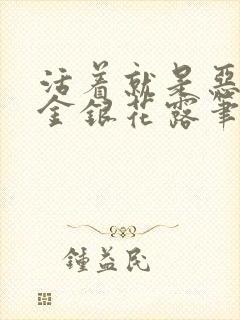 活着就是惡
金銀花露筆
鍾益民